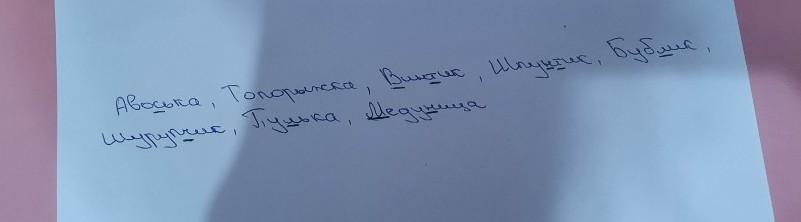 Авоська, Топорыжка, Винтик, Шпунтик, Бублик,
Шурупчик, Пулька, Медуница